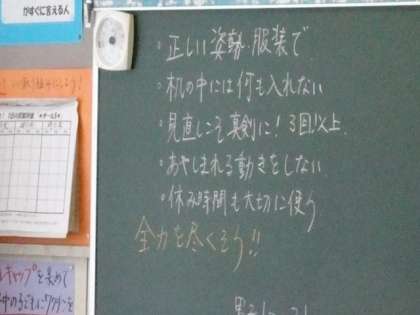 がすぐに言える人
・正しい姿勢・服装で
・机の中には何も入れない
・見直しこそ真剣に！3回以上
・あやしまれる動きをしない
・休み時間も大切に使う
全力を尽くそう!!
キャップを集めて